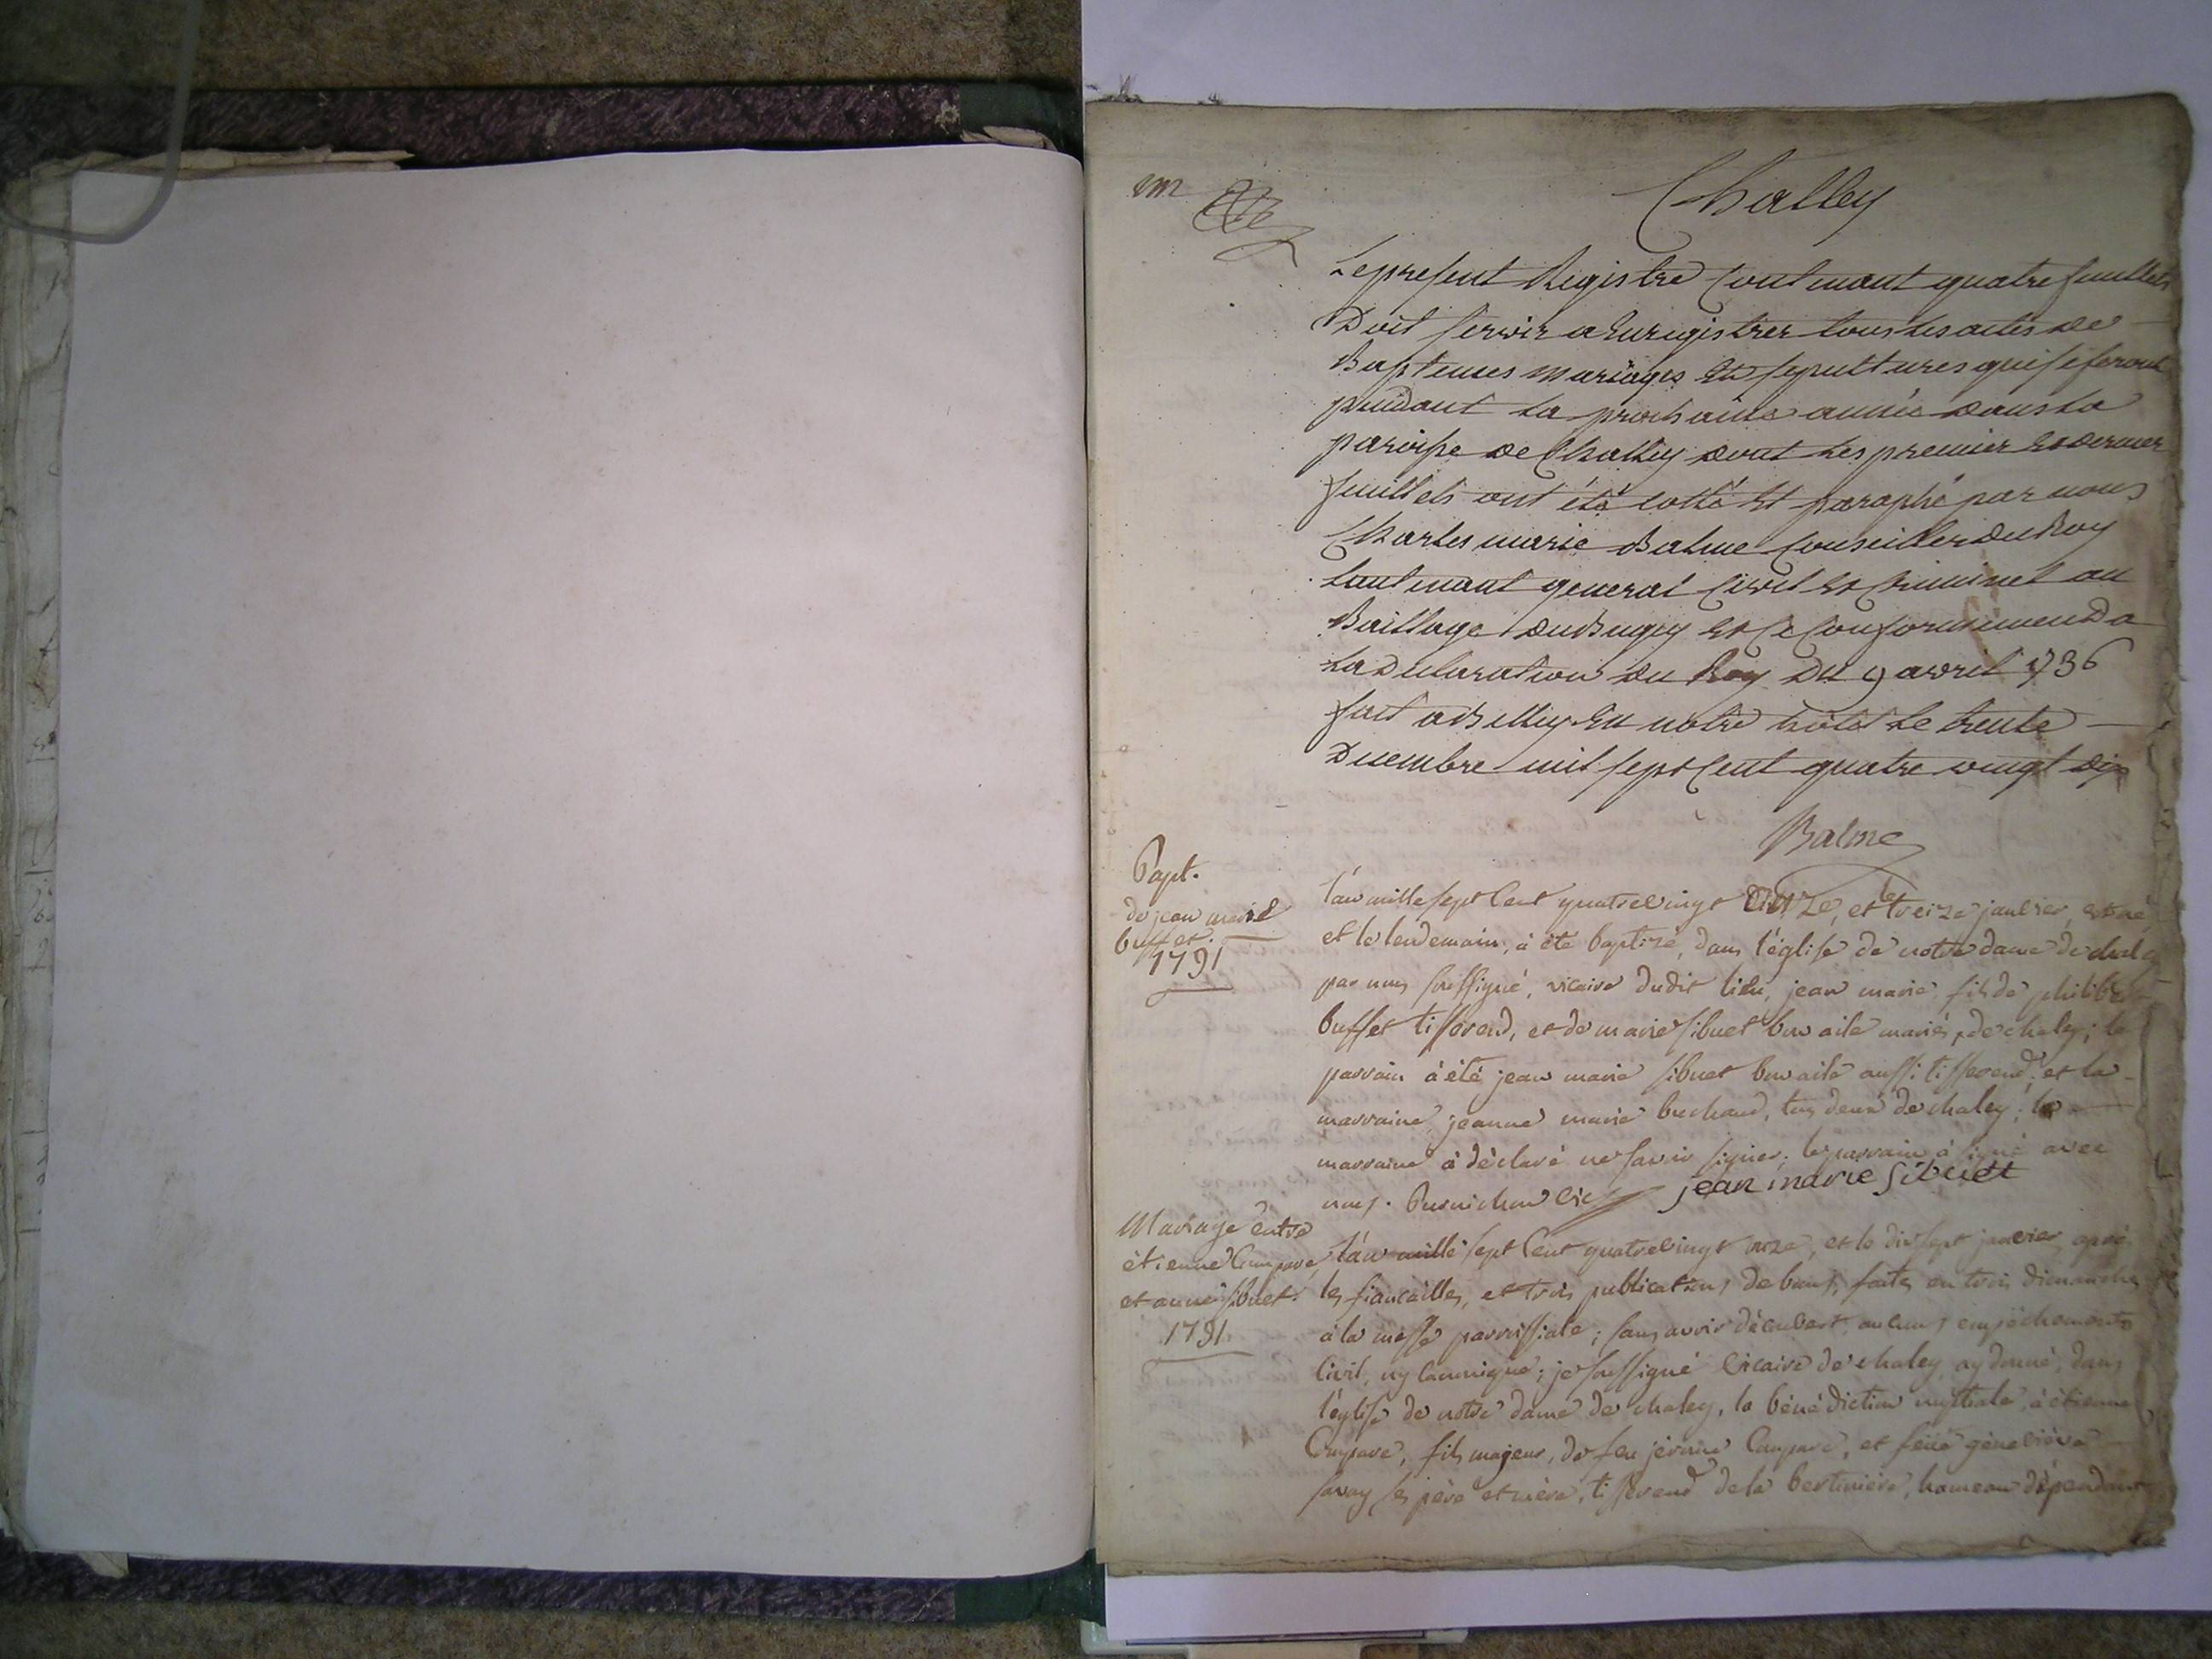 Challey
Le present Registre Contenant quatre feuillets
Doit servir a Enregistrer tous les actes de
Baptemes mariages Et sepultures qui se feront
pendant La prochaine année dans La
paroisse de Challey dont Les premier Et dernier
feuillets ont été cotté Et paraphé par nous
Charles marie Balme Conseiller du Roy
Lieutenant general Civil Et Criminel au
Baillage du Bugey Et Ce Conformement a
La Declaration du Roy Du 9 avril 1736
fait a Belley En notre hotel Le trente
Decembre mil sept Cent quatre vingt dix
Balme
Bapt.
de jean marie
buffet.
1791
l'an mille sept Cent quatrevingt onze, et le treize janvier, est né
et le lendemain, à été baptizé, dans l'église de notre dame de chaley
par nous soussigné, vicaire dudit lieu, jean marie, fils de philibert
buffet tisserend, et de marie sibuet mariés, de chaley; le
parrain à été jean marie sibuet aussi tisserend, et la
marraine, jeanne marie buchaud, tous deux de chaley; la
marraine à déclaré ne savoir signer; le parrain à signé avec
nous. vic jean marie sibuet
Mariage entre
étienne Compare
et anne sibuet.
1791
l'an mille sept Cent quatrevingt onze, et le dix sept janvier, après
les fiancailles, et trois publications de bans, faites en trois dimanches
à la messe parroissiale; sans avoir découvert aucuns empêchements
Civil, ny Canonique; je soussigné vicaire de chaley ay donné, dans
l'église de notre dame de chaley, la bénédiction nuptiale, à étienne
Compare, fils majeur, de feu jérome Compare, et feüe genevieve
savay ses père et mère, tisserend de la bertinière, hameau dépendant